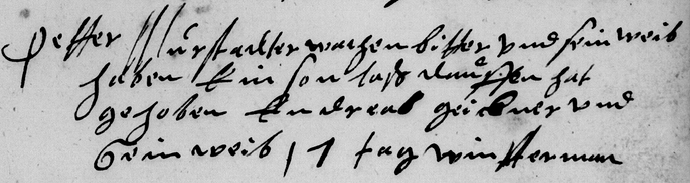 Petter Murstatter wachenbitter vnd sein weib
haben Ein son lasß dauffen hat
gehoben Endreas geickner vnd
Sein weib 17 tag winttermon